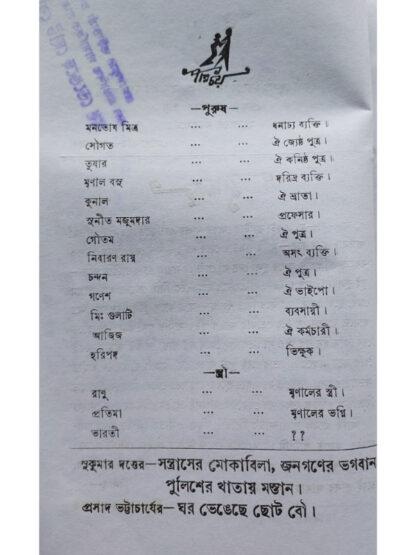 পরিচয়
—পুরুষ—
মনতোষ মিত্র ... ... ধনাঢ্য ব্যক্তি।
সৌগত ... ... ঐ জ্যেষ্ঠ পুত্র।
তুষার ... ... ঐ কনিষ্ঠ পুত্র।
মৃণাল বসু ... ... দরিদ্র ব্যক্তি।
কুনাল ... ... ঐ ভ্রাতা।
সুনীত মজুমদার ... ... প্রফেসার।
গৌতম ... ... ঐ পুত্র।
নিবারণ রায় ... ... অসৎ ব্যক্তি।
চন্দন ... ... ঐ পুত্র।
গণেশ ... ... ঐ ভাইপো।
মিঃ গুলাটি ... ... ব্যবসায়ী।
আজিজ ... ... ঐ কর্মচারী।
হরিপদ ... ... ভিক্ষুক।
—স্ত্রী—
রানু ... ... মৃণালের স্ত্রী।
প্রতিমা ... ... মৃণালের ভগ্নি।
ভারতী ... ... ??
সুকুমার দত্তের—সন্ত্রাসের মোকাবিলা, জনগণের ভগবান
পুলিশের খাতায় মস্তান।
প্রসাদ ভট্টাচার্যের—ঘর ভেঙেছে ছোট বৌ।